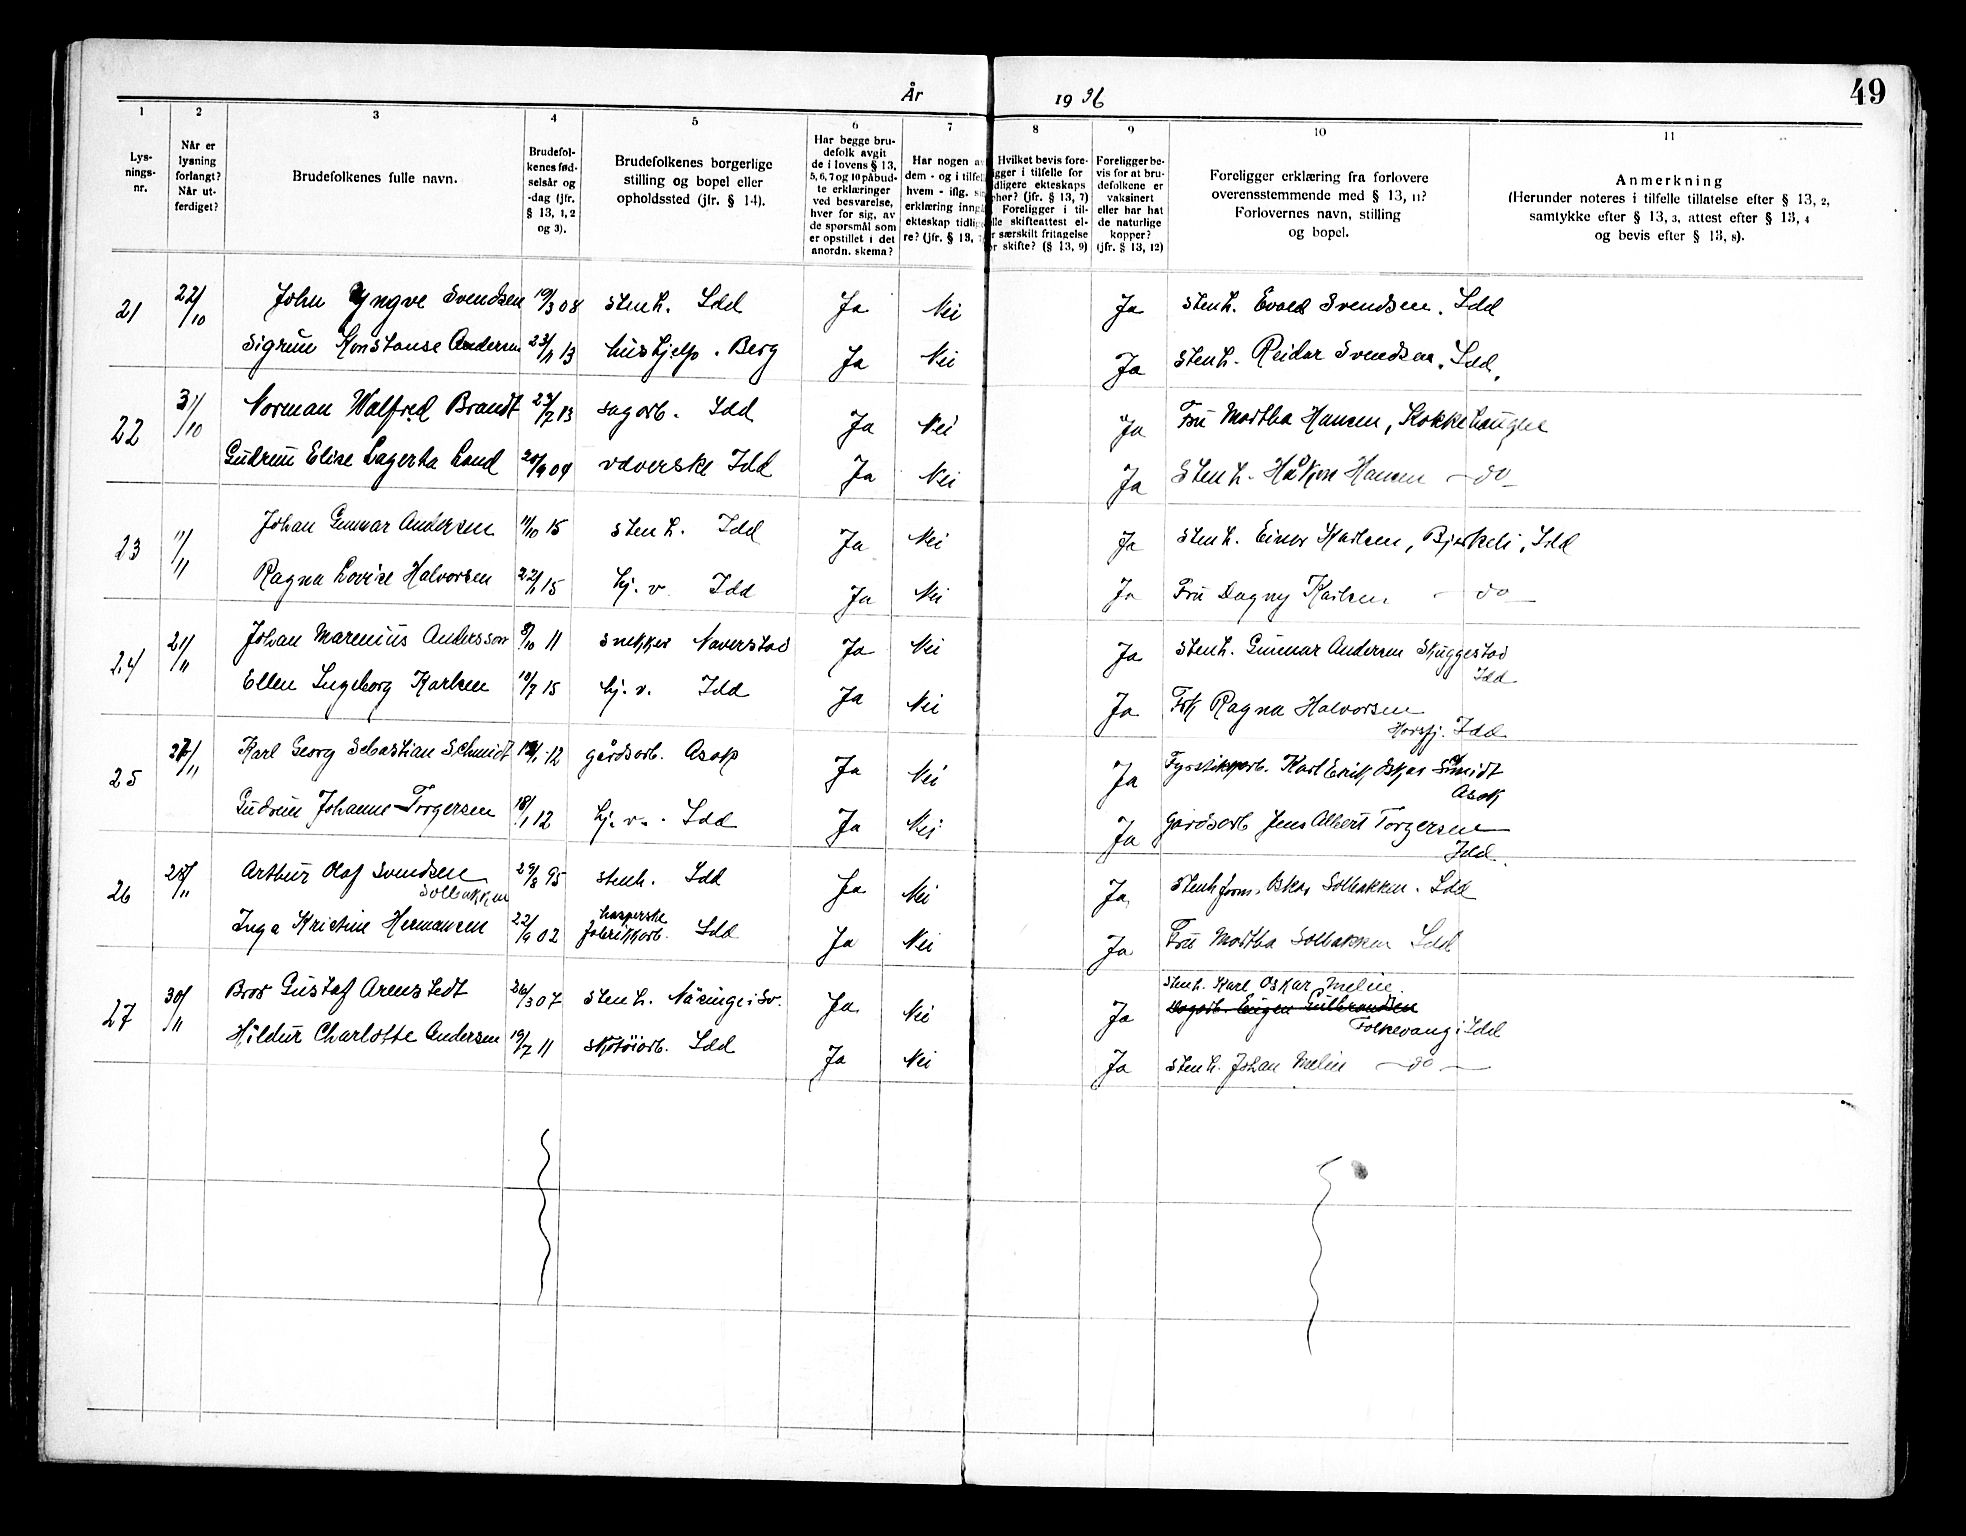 År 1936
49
1 2 3 4 5 6 7 8 9 10 11
Lys-
nings-
nr.
Når er
lysning
forlangt?
Når ut-
ferdiget?
Brudefolkenes fulle navn.
Brudefol-
kenes fød-
selsår og
-dag (jfr.
§ 13, 1, 2
og 3).
Brudefolkenes borgerlige
stilling og bopel eller
opholdssted (jfr. § 14).
Har begge bru-
defolk avgit
de i lovens § 13,
5, 6, 7 og 10 påbud-
te erklæringer
ved besvarelse,
hver for sig, av
de spørsmål som
er opstillet i det
anordn. skema?
Har nogen av
dem - og i tilfelle
hvem - iflg.
erklæring inng
ekteskap tidlig
re? (jfr. § 13,
Hvilket bevis fore-
igger i tilfelle for
dligere ekteskaps
hør? (jfr. § 13, 7)
Foreligger i til-
lle skifteattest el-
r særskilt fritagelse
or skifte? (§ 13, 9)
Foreligger be-
vis for at bru-
defolkene er
vaksinert
eller har hat
de naturlige
kopper?
(jfr. § 13, 12)
Foreligger erklæring fra forlovere
overensstemmende med § 13, 11?
Forlovernes navn, stilling
og bopel.
Anmerkning
(Herunder noteres i tilfelle tillatelse efter § 13, 2,
samtykke efter § 13, 3, attest efter § 13, 4
og bevis efter § 13, 8).
21 22/10 John Yngve Svendsen 19/3 08 stenh. Idd Ja Nei Ja stenh. Evald Svendsen. Idd
Sigrun Konstanse Andersen 23/1 13 hushjelp. Berg Ja Nei Ja stenh. Reidar Svendsen. Idd.
22 31/10 Norman Walfred Brandt 23/7 13 sagarb. Idd Ja Nei Ja Fru Martha Hansen, Kokkehaugen
Gudrun Elise Lagerta Lund 20/9 04 væverske Idd Ja Nei Ja Stenh. Håkon Hansen — do —
23 11/11 Johan Gunnar Andersen 11/10 15 stenh. Idd Ja Nei Ja stenh. Einar Karlsen, Bjerkeli, Idd
Ragna Lovise Halvorsen 22/1 15 hj. v. Idd Ja Nei Ja Fru Dagny Karlsen — do —
24 21/11 Johan Marenius Andersson 9/10 11 snekker Naverstad Ja Nei Ja stenh. Gunnar Andersen Skuggestad
Idd
Ellen Ingeborg Karlsen 10/7 15 hj. v. Idd Ja Nei Ja Frk Ragna Halvorsen
Idd
25 27/11 Karl Georg Sebastian Schmidt 12 gårdsarb. Asak Ja Nei Ja Fyrstikkarb. Karl Erik Oskar Schmidt
Asak
Gudrun Johanne Torgersen 18/1 12 hj. v. Idd Ja Nei Ja Gårdsarb Jens Albert Torgersen
Idd.
26 28/11 Arthur Olaf Svendsen 29/8 95 stenh. Idd Ja Nei Ja stenh. form. Oskar Solbakken. Idd
Solbakken
Inga Kristine Hermansen 22/9 02 hasperske
fabrikkarb. Idd Ja Nei Ja Fru Martha Solbakken Idd
27 30/11 Bror Gustaf Arenstedt 26/3 07 stenh. Näsinge i Sv. Ja Nei Ja stenh. Karl Oskar Melin.
Sagarb. Eugen Gulbrandsen
Folkevang i Idd
Hildur Charlotte Andersen 19/7 11 skotøiarb. Idd Ja Nei Ja stenh. Johan Melin — do —